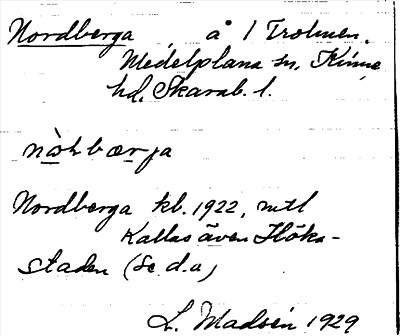 Nordberga, å 1 Trolmen,
Medelplana sn, Kinne
hd, Skarab. l.
Nordberga kb. 1922, mtl
Kallas även Höka-
staden (Se d.a)
L. Madsén 1929